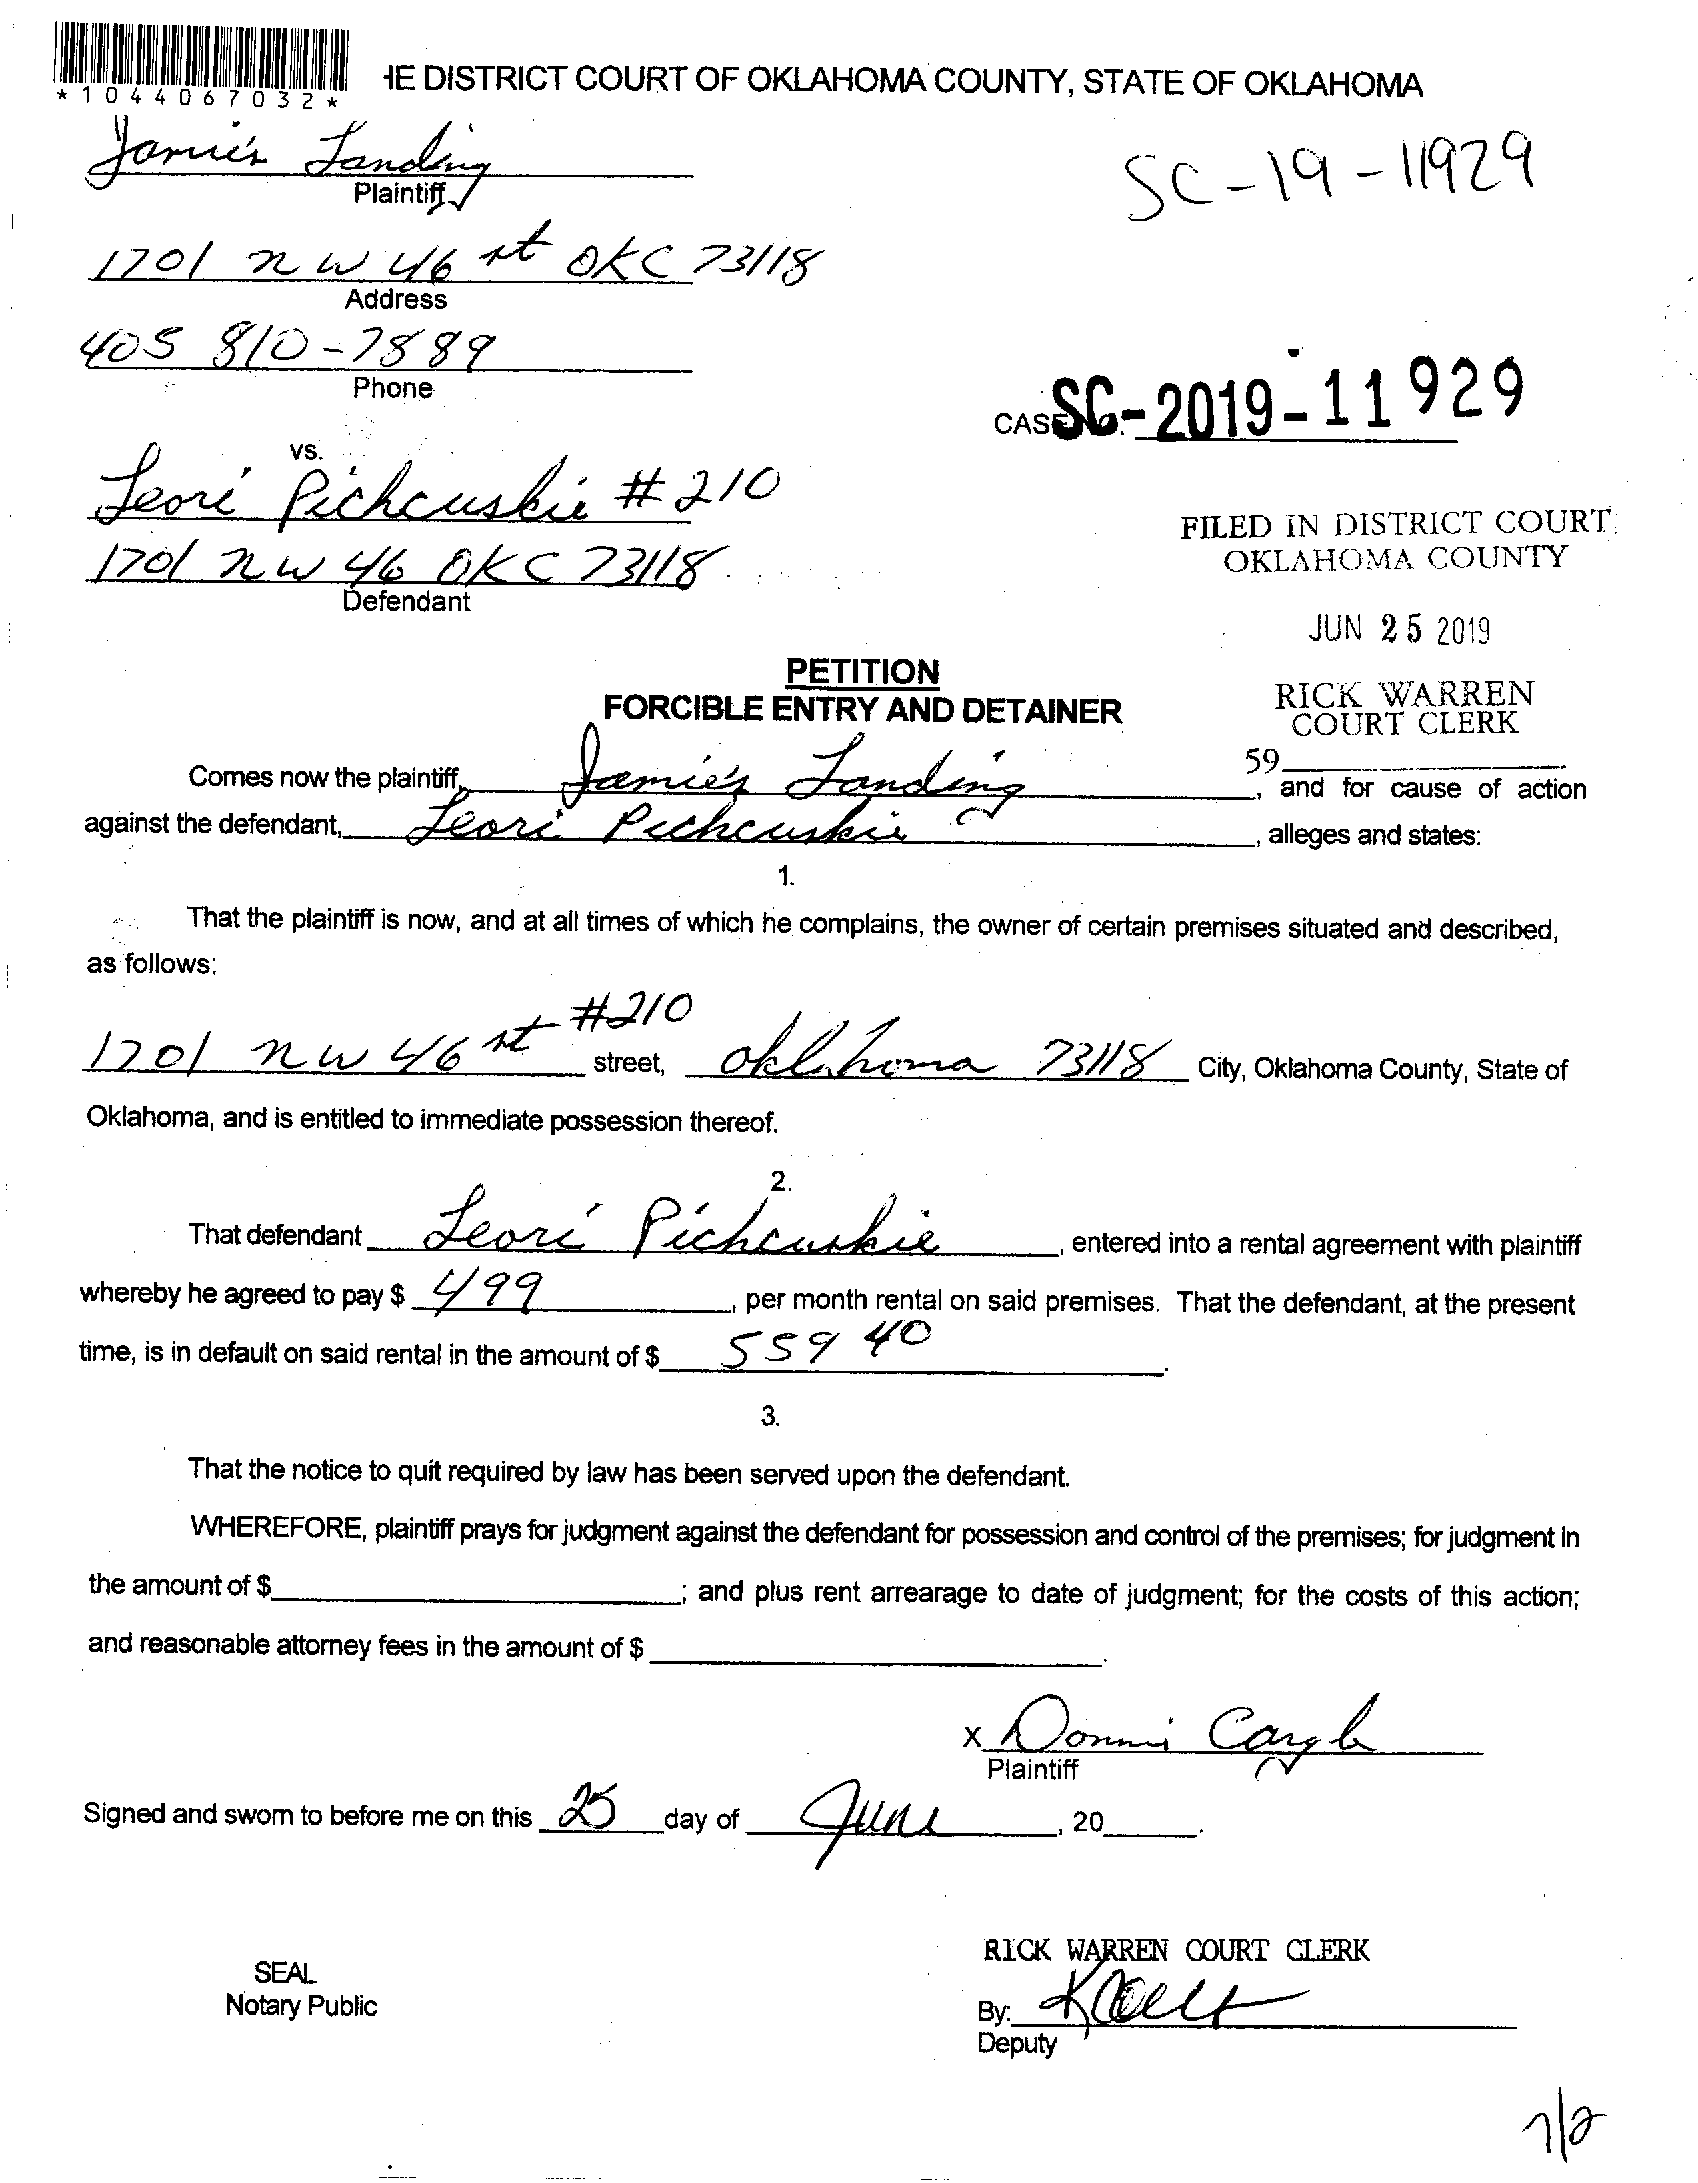 *1044067032*
HE DISTRICT COURT OF OKLAHOMA COUNTY, STATE OF OKLAHOMA
Jamie's Landing
Plaintiff
SC-19-11929
1701 NW 46 st OKC 73118
Address
405 810-7889
Phone
CASE SC-2019-11929
vs.
Leori Pichcuskie #210
1701 NW 46 OKC 73118
Defendant
FILED IN DISTRICT COURT
OKLAHOMA COUNTY
JUN 25 2019
RICK WARREN
COURT CLERK
59
PETITION
FORCIBLE ENTRY AND DETAINER
Comes now the plaintiff, Jamie's Landing, and for cause of action
against the defendant, Leori Pichcuskie, alleges and states:
1.
That the plaintiff is now, and at all times of which he complains, the owner of certain premises situated and described,
as follows:
1701 NW 46 st #210 street, Oklahoma 73118 City, Oklahoma County, State of
Oklahoma, and is entitled to immediate possession thereof.
2.
That defendant Leori Pichcuskie, entered into a rental agreement with plaintiff
whereby he agreed to pay $ 499, per month rental on said premises. That the defendant, at the present
time, is in default on said rental in the amount of $ 559 40.
3.
That the notice to quit required by law has been served upon the defendant.
WHEREFORE, plaintiff prays for judgment against the defendant for possession and control of the premises; for judgment in
the amount of $ ; and plus rent arrearage to date of judgment; for the costs of this action;
and reasonable attorney fees in the amount of $ .
x Donni Cargle
Plaintiff
Signed and sworn to before me on this 25 day of June, 20 .
SEAL
Notary Public
RICK WARREN COURT CLERK
By:
Deputy
7/2